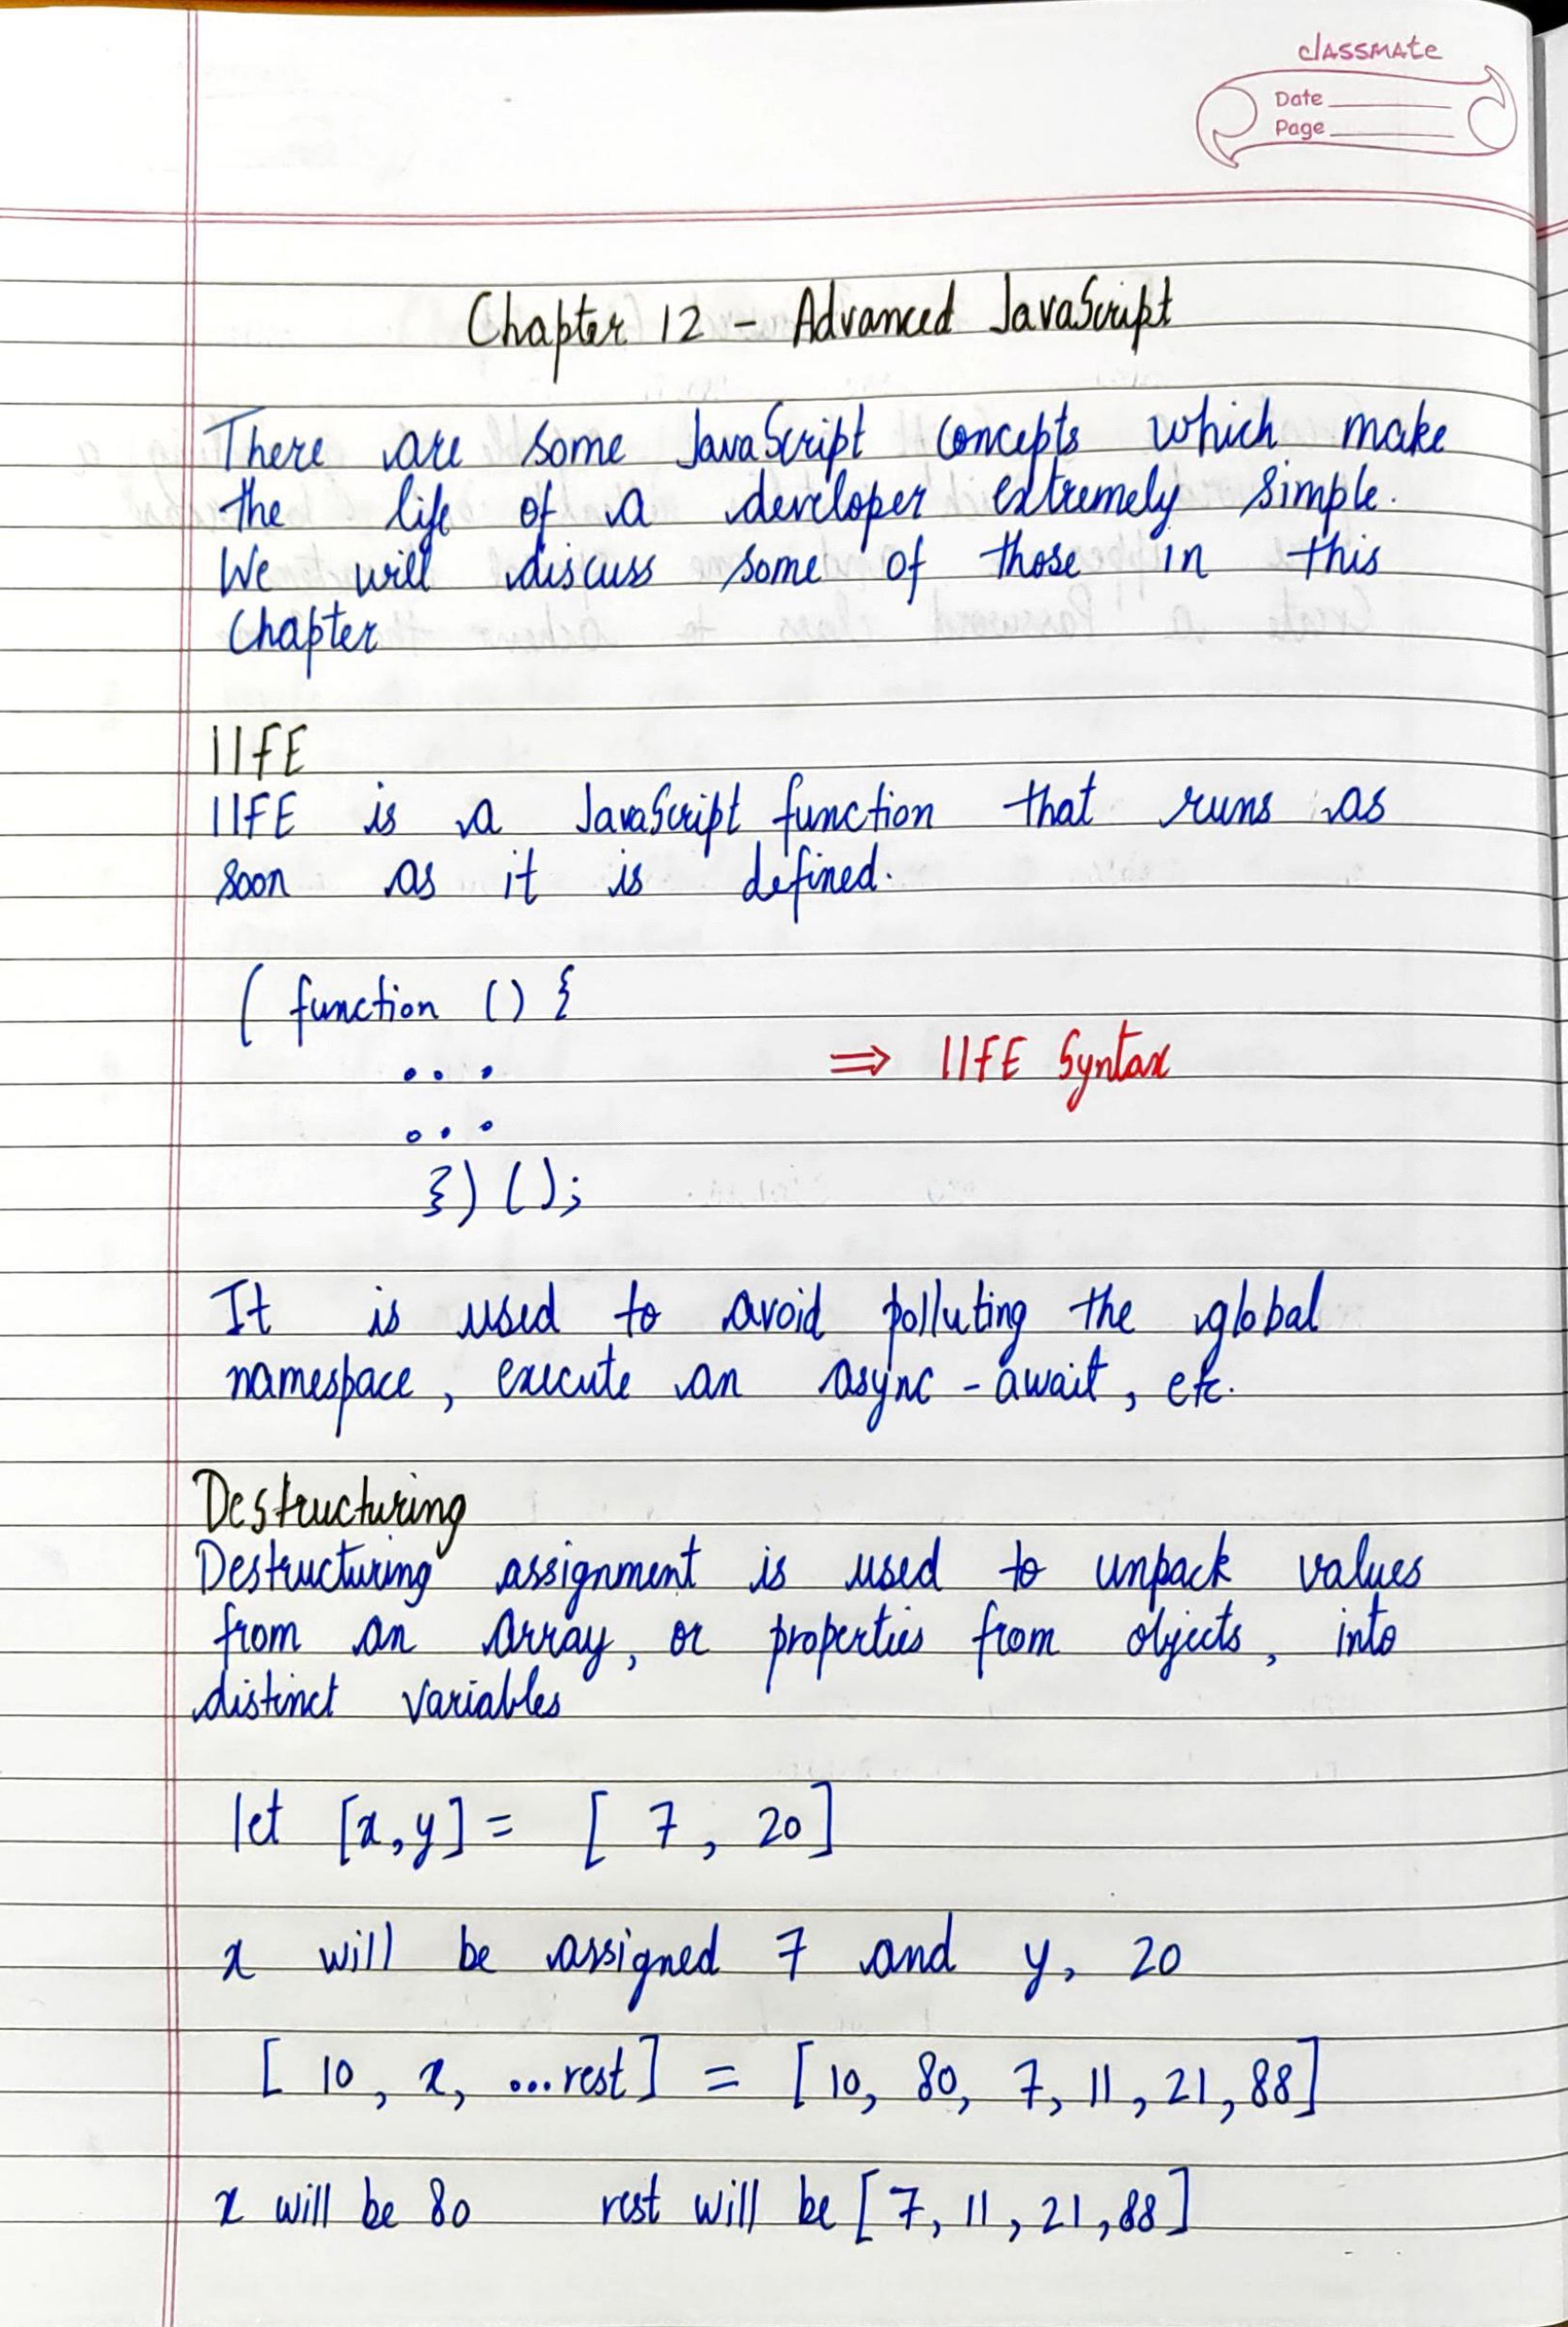 classmate
Date
Page
Chapter 12 - Advanced JavaScript
There are some JavaScript concepts which make
the life of a developer extremely simple.
We will discuss some of those in this
Chapter
IIFE
IIFE is a JavaScript function that runs as
soon as it is defined.
( function () {
...
⇒ IIFE Syntax
...
}) ();
It is used to avoid polluting the global
namespace, execute an async - await, etc.
Destructuring
Destructuring assignment is used to unpack values
from an array, or properties from objects, into
distinct variables
let [x,y] = [ 7, 20]
x will be assigned 7 and y, 20
[ 10, x, ...rest] = [10, 80, 7, 11, 21, 88]
x will be 80 rest will be [7, 11, 21, 88]